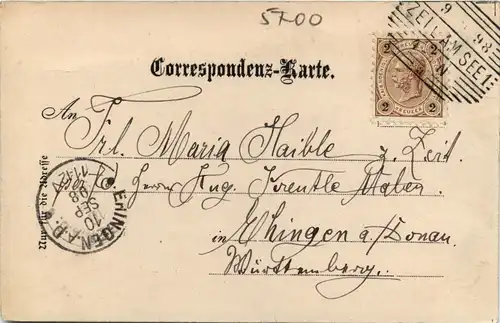 5700
9 98
ZELL AM SEE 1
2 2
Correspondenz-Karte.
An Frl. Maria Haible
z. Zeit.
Herrn Aug.
in Ehingen a/Donau.
Württemberg.
Nur für die Adresse
EHINGEN A.D.
10
SEP
98